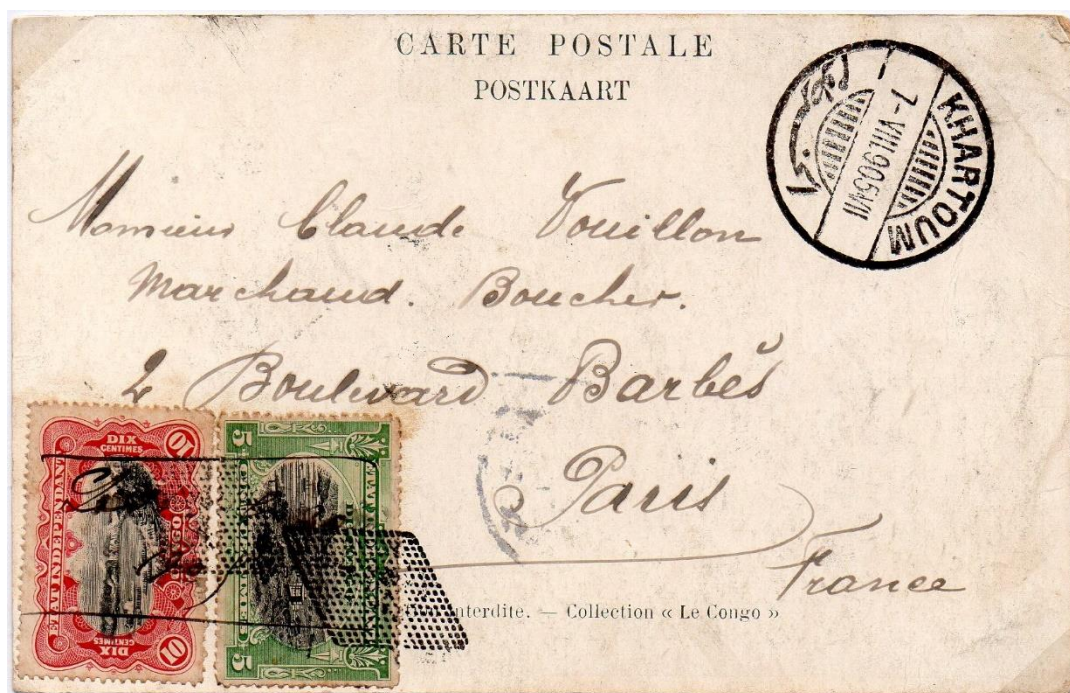 CARTE POSTALE
POSTKAART
KHARTOUM
7-VIII.905.VII
الخرطوم
Monsieur Claude Vouillon
Marchand. Boucher.
2 Boulevard Barbès
Paris
France
DIX
CENTIMES
10
10
ETAT INDEPENDANT
CONGO
10
DIX
CENTIMES
5
CINQ CENTIMES
5
interdite. — Collection « Le Congo »